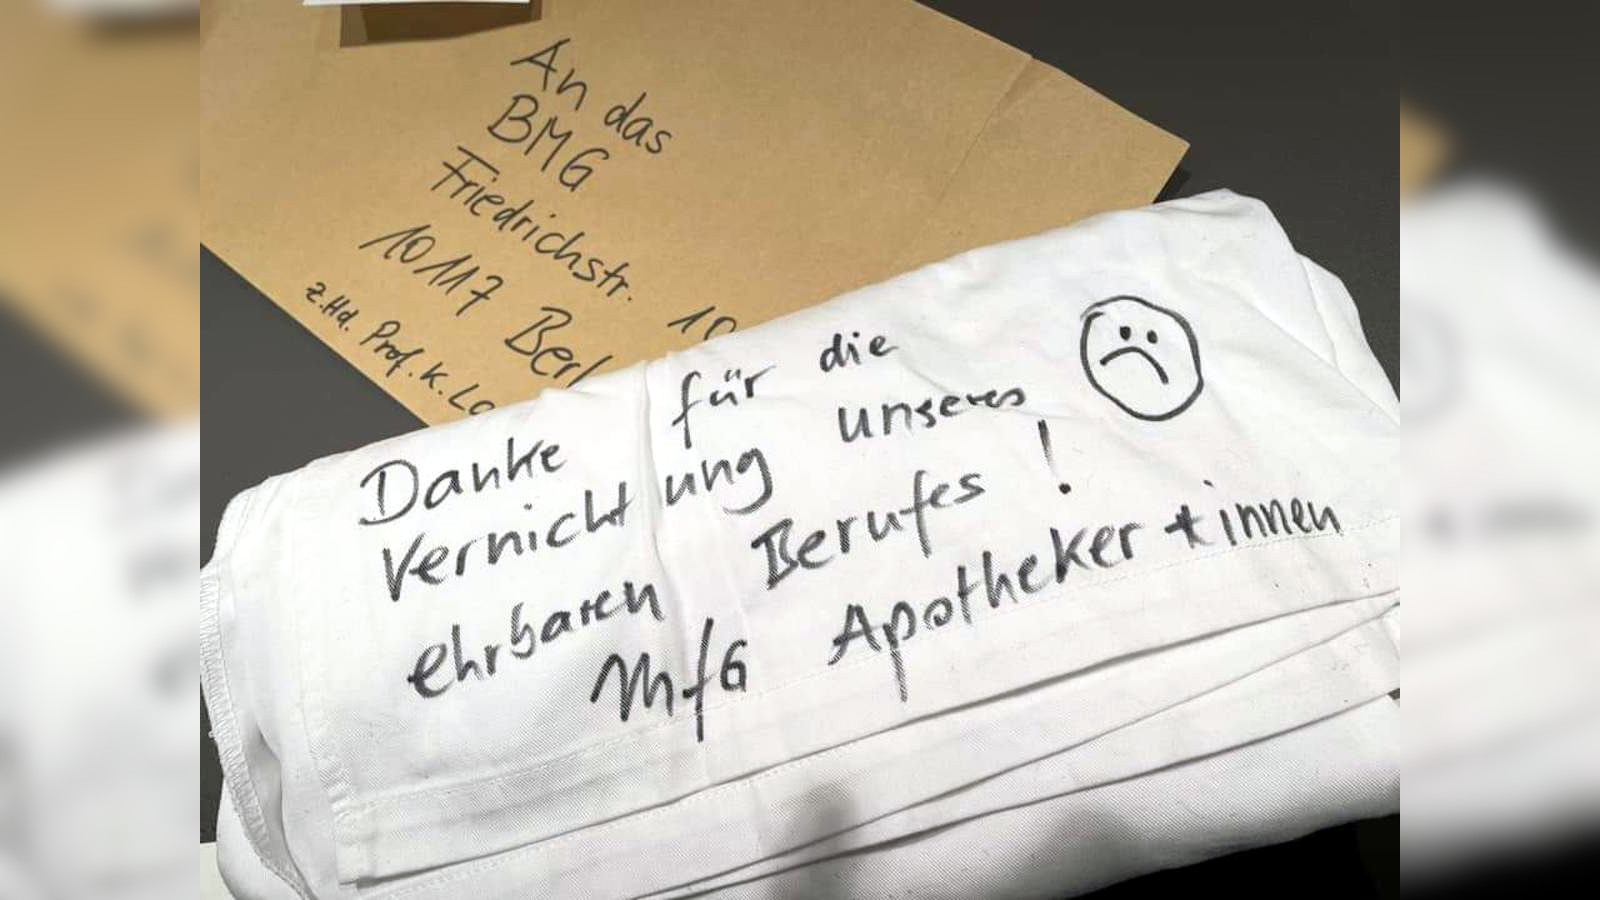 An das
BMG
Friedrichstr.
10117
z.Hd. Prof. K.
Danke für die
Vernichtung unseres
ehrbaren Berufes !
MfG Apotheker*innen